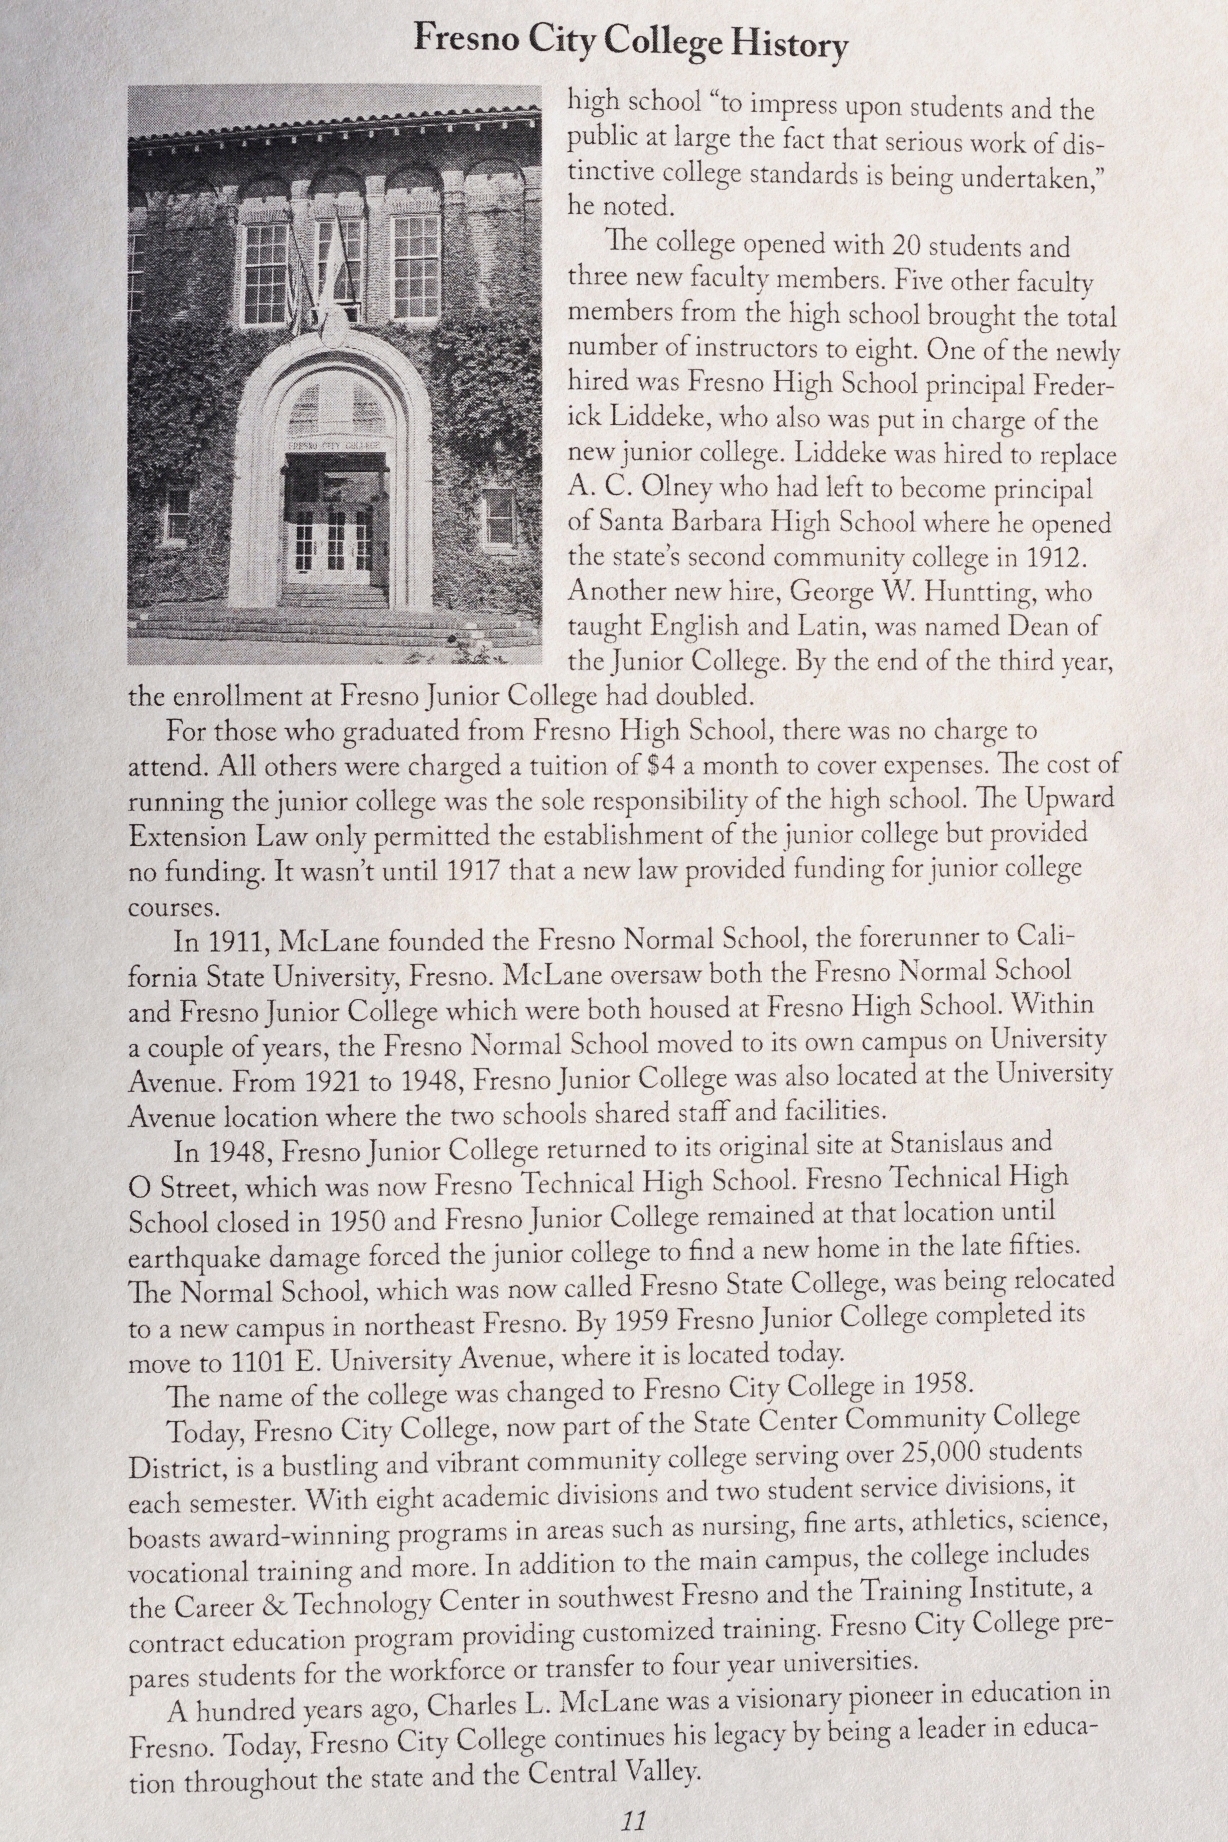 Fresno City College History
FRESNO CITY COLLEGE
high school “to impress upon students and the
public at large the fact that serious work of dis-
tinctive college standards is being undertaken,”
he noted.
The college opened with 20 students and
three new faculty members. Five other faculty
members from the high school brought the total
number of instructors to eight. One of the newly
hired was Fresno High School principal Freder-
ick Liddeke, who also was put in charge of the
new junior college. Liddeke was hired to replace
A. C. Olney who had left to become principal
of Santa Barbara High School where he opened
the state’s second community college in 1912.
Another new hire, George W. Huntting, who
taught English and Latin, was named Dean of
the Junior College. By the end of the third year,
the enrollment at Fresno Junior College had doubled.
For those who graduated from Fresno High School, there was no charge to
attend. All others were charged a tuition of $4 a month to cover expenses. The cost of
running the junior college was the sole responsibility of the high school. The Upward
Extension Law only permitted the establishment of the junior college but provided
no funding. It wasn’t until 1917 that a new law provided funding for junior college
courses.
In 1911, McLane founded the Fresno Normal School, the forerunner to Cali-
fornia State University, Fresno. McLane oversaw both the Fresno Normal School
and Fresno Junior College which were both housed at Fresno High School. Within
a couple of years, the Fresno Normal School moved to its own campus on University
Avenue. From 1921 to 1948, Fresno Junior College was also located at the University
Avenue location where the two schools shared staff and facilities.
In 1948, Fresno Junior College returned to its original site at Stanislaus and
O Street, which was now Fresno Technical High School. Fresno Technical High
School closed in 1950 and Fresno Junior College remained at that location until
earthquake damage forced the junior college to find a new home in the late fifties.
The Normal School, which was now called Fresno State College, was being relocated
to a new campus in northeast Fresno. By 1959 Fresno Junior College completed its
move to 1101 E. University Avenue, where it is located today.
The name of the college was changed to Fresno City College in 1958.
Today, Fresno City College, now part of the State Center Community College
District, is a bustling and vibrant community college serving over 25,000 students
each semester. With eight academic divisions and two student service divisions, it
boasts award-winning programs in areas such as nursing, fine arts, athletics, science,
vocational training and more. In addition to the main campus, the college includes
the Career & Technology Center in southwest Fresno and the Training Institute, a
contract education program providing customized training. Fresno City College pre-
pares students for the workforce or transfer to four year universities.
A hundred years ago, Charles L. McLane was a visionary pioneer in education in
Fresno. Today, Fresno City College continues his legacy by being a leader in educa-
tion throughout the state and the Central Valley.
11